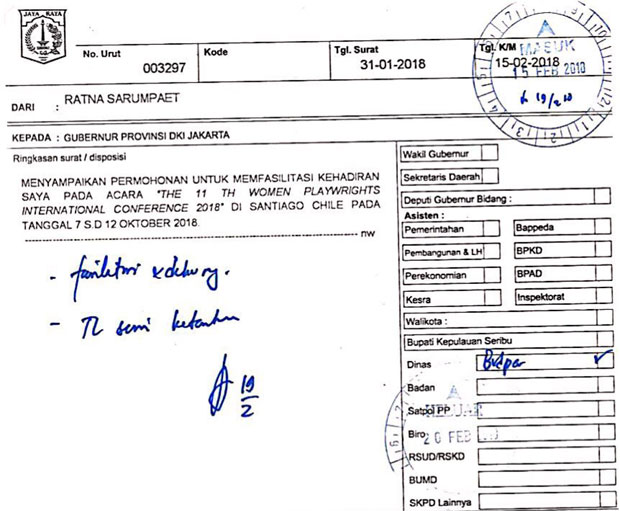 JAYA RAYA
No. Urut
003297
Kode
Tgl. Surat
31-01-2018
Tgl. K/M
15-02-2018
MASUK
15 FEB 2018
DARI : RATNA SARUMPAET
KEPADA : GUBERNUR PROVINSI DKI JAKARTA
Ringkasan surat / disposisi
MENYAMPAIKAN PERMOHONAN UNTUK MEMFASILITASI KEHADIRAN
SAYA PADA ACARA "THE 11 TH WOMEN PLAYWRIGHTS
INTERNATIONAL CONFERENCE 2018" DI SANTIAGO CHILE PADA
TANGGAL 7 S.D 12 OKTOBER 2018.
nw
- TL
19
2
Wakil Gubernur
Sekretaris Daerah
Deputi Gubernur Bidang :
Asisten :
Pemerintahan
Bappeda
Pembangunan & LH
BPKD
Perekonomian
BPAD
Kesra
Inspektorat
Walikota :
Bupati Kepulauan Seribu
Dinas
Badan
KELUAR
Satpol PP
Biro
20 FEB
RSUD/RSKD
BUMD
SKPD Lainnya